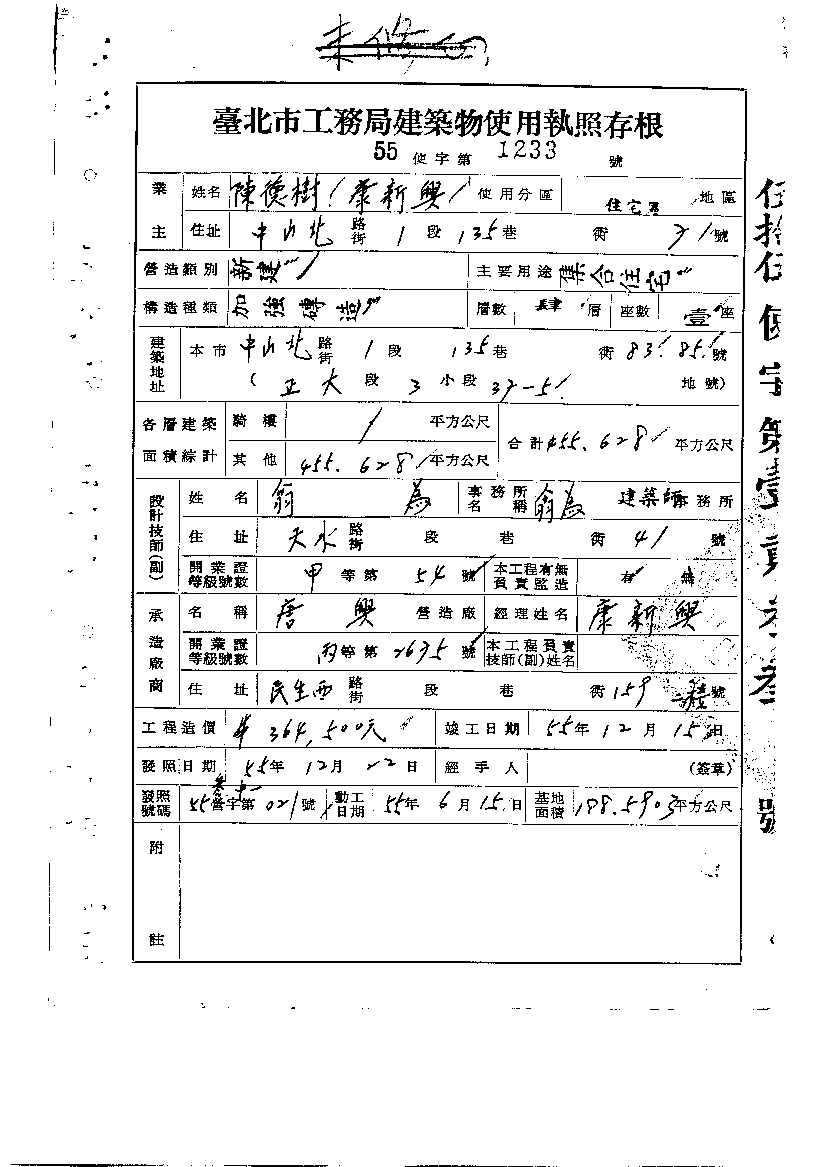 臺北市工務局建築物使用執照存根
55 使字第 1233 號
業主 姓名 陳 樹 康新興 使用分區 住宅區 地區
住址 中山北 路街 1 段 135 巷 街 號
營造類別 新建 主要用途 集合住宅
構造種類 加強磚造 層數 肆 層 座數 壹 座
建築地址 本市 中山北 路街 1 段 135 巷 街 83. 85. 號
( 正大 段 3 小段 37-5 地號)
各層建築面積綜計 騎樓 / 平方公尺 合計 455.628 平方公尺
其他 455.628 平方公尺
設計技師(副) 姓名 翁為 事務所名稱 翁為 建築師事務所
住址 天水 路街 段 巷 街 41 號
開業證等級號數 甲 等第 54 號 本工程有無負責監造 有 無
承造廠商 名稱 唐興 營造廠 經理姓名 康新興
開業證等級號數 丙 等第 2635 號 本工程負責技師(副)姓名
住址 民生西 路街 段 巷 街 159 號
工程造價 $ 364,500元 竣工日期 55年 12月 15日
發照日期 55年 12月 22日 經手人 (簽章)
發照號碼 55 營字第 021 號 動工日期 55年 6月 15日 基地面積 188.5903 平方公尺
附註
伍拾伍使字第壹貳叁叁號